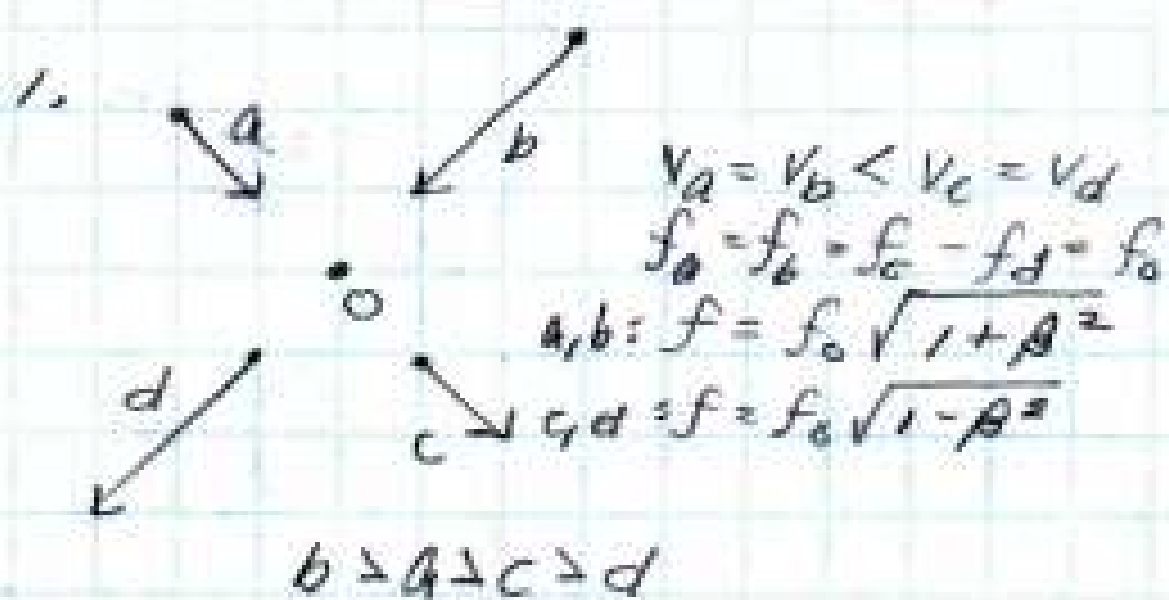 1.
a
b
V_a = V_b < V_c = V_d
f_a = f_b = f_c - f_d = f_o
O
a,b: f = f_o √(1+β²)
d
c
c,d: f = f_o √(1-β²)
b > a > c > d